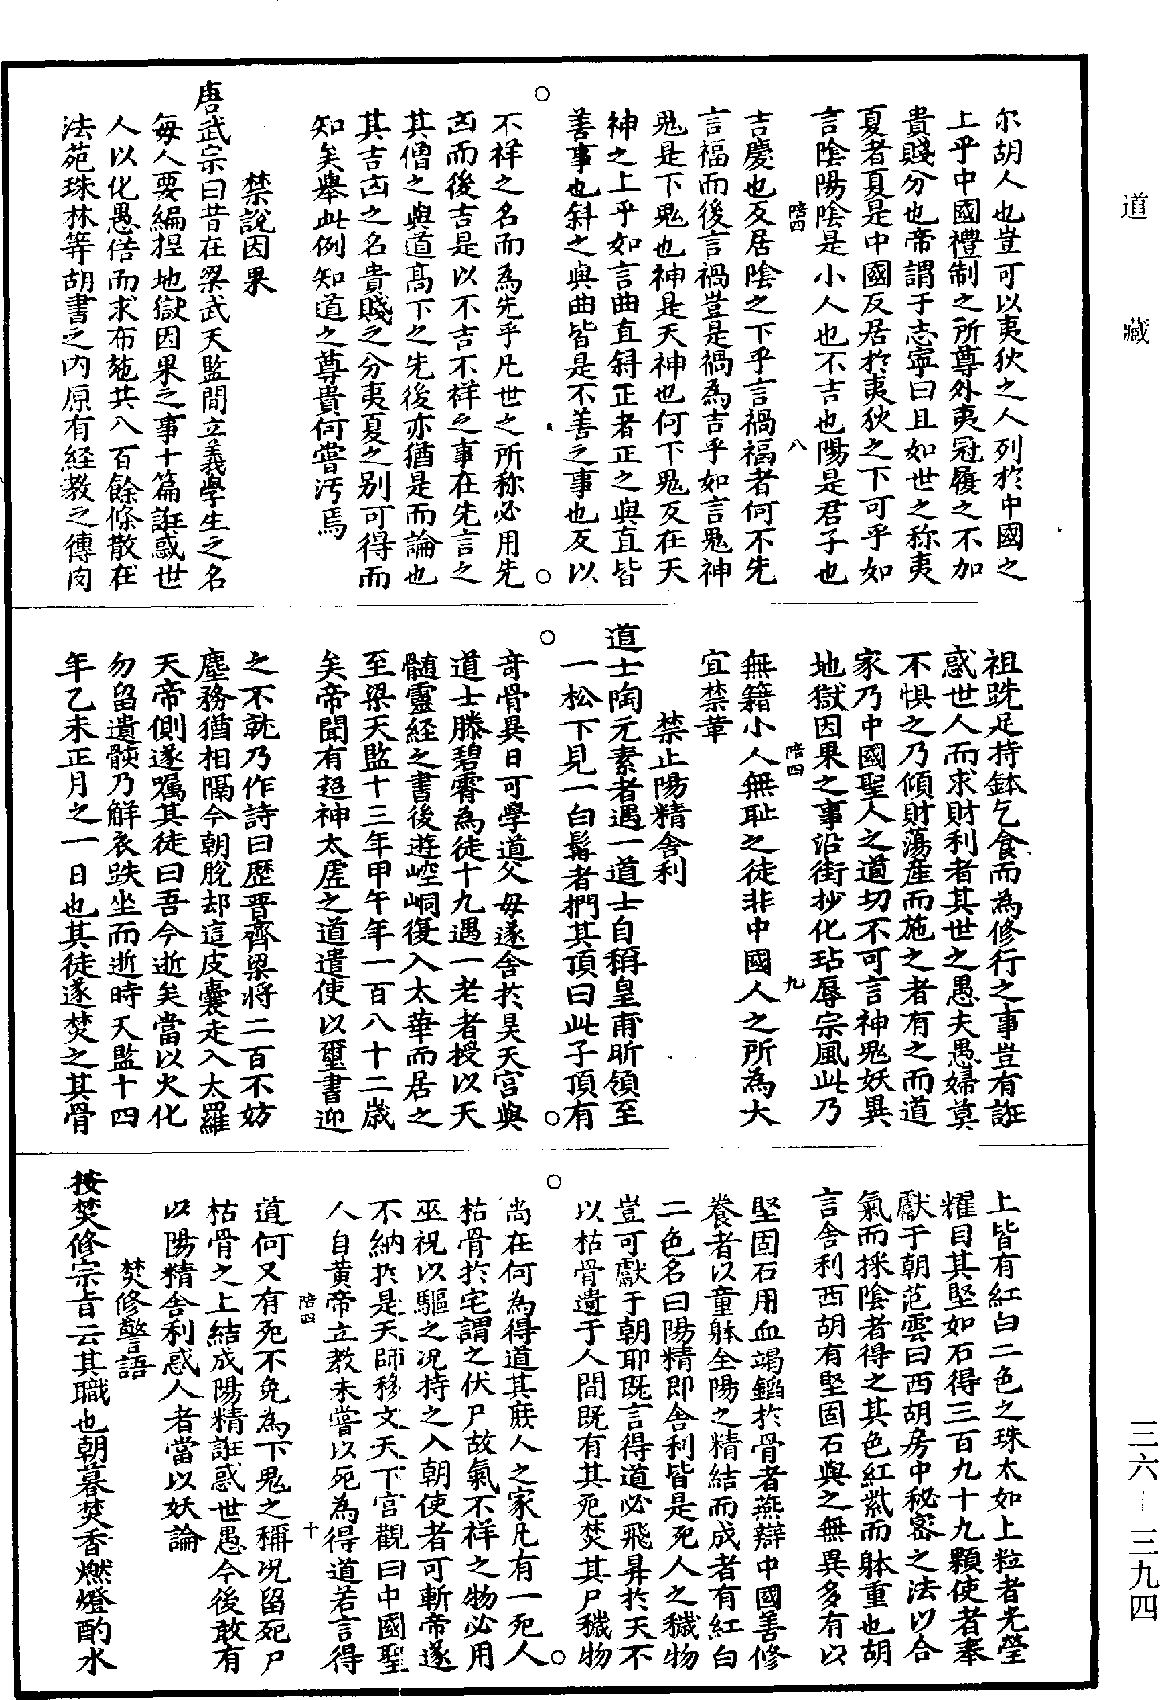 道藏
三六—三九四
尔胡人也豈可以夷狄之人列於中國之
上乎中國禮制之所尊外夷冠履之不加
貴賤分也帝謂于志寧曰且如世之称夷
夏者夏是中國反居於夷狄之下可乎如
言陰陽陰是小人也不吉也陽是君子也
陪四
八
吉慶也反居陰之下乎言禍福者何不先
言福而後言禍豈是禍為吉乎如言鬼神
鬼是下鬼也神是天神也何下鬼反在天
神之上乎如言曲直斜正者正之與直皆
善事也斜之與曲皆是不善之事也反以
不祥之名而為先乎凡世之所称必用先
凶而後吉是以不吉不祥之事在先言之
其僧之與道高下之先後亦猶是而論也
其吉凶之名貴賤之分夷夏之别可得而
知矣舉此例知道之尊貴何嘗汚焉
禁說因果
唐武宗曰昔在梁武天監間立義學生之名
每人要編捏地獄因果之事十篇誑惑世
人以化愚俗而求布施共八百餘條散在
法苑珠林等胡書之内原有經教之傳肉
祖跣足持鉢乞食而為修行之事豈有誑
惑世人而求財利者其世之愚夫愚婦莫
不惧之乃傾財蕩産而施之者有之而道
家乃中國聖人之道切不可言神鬼妖異
地獄因果之事沿街抄化玷辱宗風此乃
陪四
九
無籍小人無恥之徒非中國人之所為大
宜禁革
禁止陽精舍利
道士陶元素者遇一道士自稱皇甫昕領至
一松下見一白鬚者捫其頂曰此子頂有
奇骨異日可學道父母遂舍於昊天宮與
道士滕碧霄為徒十九遇一老者授以天
髓靈經之書後遊崆峒復入太華而居之
至梁天監十三年甲午年一百八十二歲
矣帝聞有超神太虛之道遣使以璽書迎
之不就乃作詩曰歷晋齊梁将二百不妨
塵務猶相隔今朝脫却這皮囊走入太羅
天帝側遂囑其徒曰吾今逝矣當以火化
勿留遺骸乃解衣趺坐而逝時天監十四
年乙未正月之一日也其徒遂焚之其骨
上皆有紅白二色之珠太如上粒者光瑩
耀目其堅如石得三百九十九顆使者奉
獻于朝范雲曰西胡房中秘密之法以合
氣而採陰者得之其色紅紫而躰重也胡
言舍利西胡有堅固石與之無異多有以
堅固石用血竭鎔於骨者燕辯中國善修
養者以童躰全陽之精結而成者有紅白
二色名曰陽精即舍利皆是死人之穢物
豈可獻于朝耶既言得道必飛昇於天不
以枯骨遺于人間既有其死焚其尸穢物
尚在何為得道其庶人之家凡有一死人
枯骨於宅謂之伏尸故氣不祥之物必用
巫祝以驅之况持之入朝使者可斬帝遂
不納於是天師移文天下宫觀曰中國聖
人自黄帝立教未嘗以死為得道若言得
陪四
十
道何又有死不免為下鬼之稱况留死尸
枯骨之上結成陽精誑惑世愚今後敢有
以陽精舍利惑人者當以妖論
焚修警語
按焚修宗旨云其職也朝暮焚香燃燈酌水